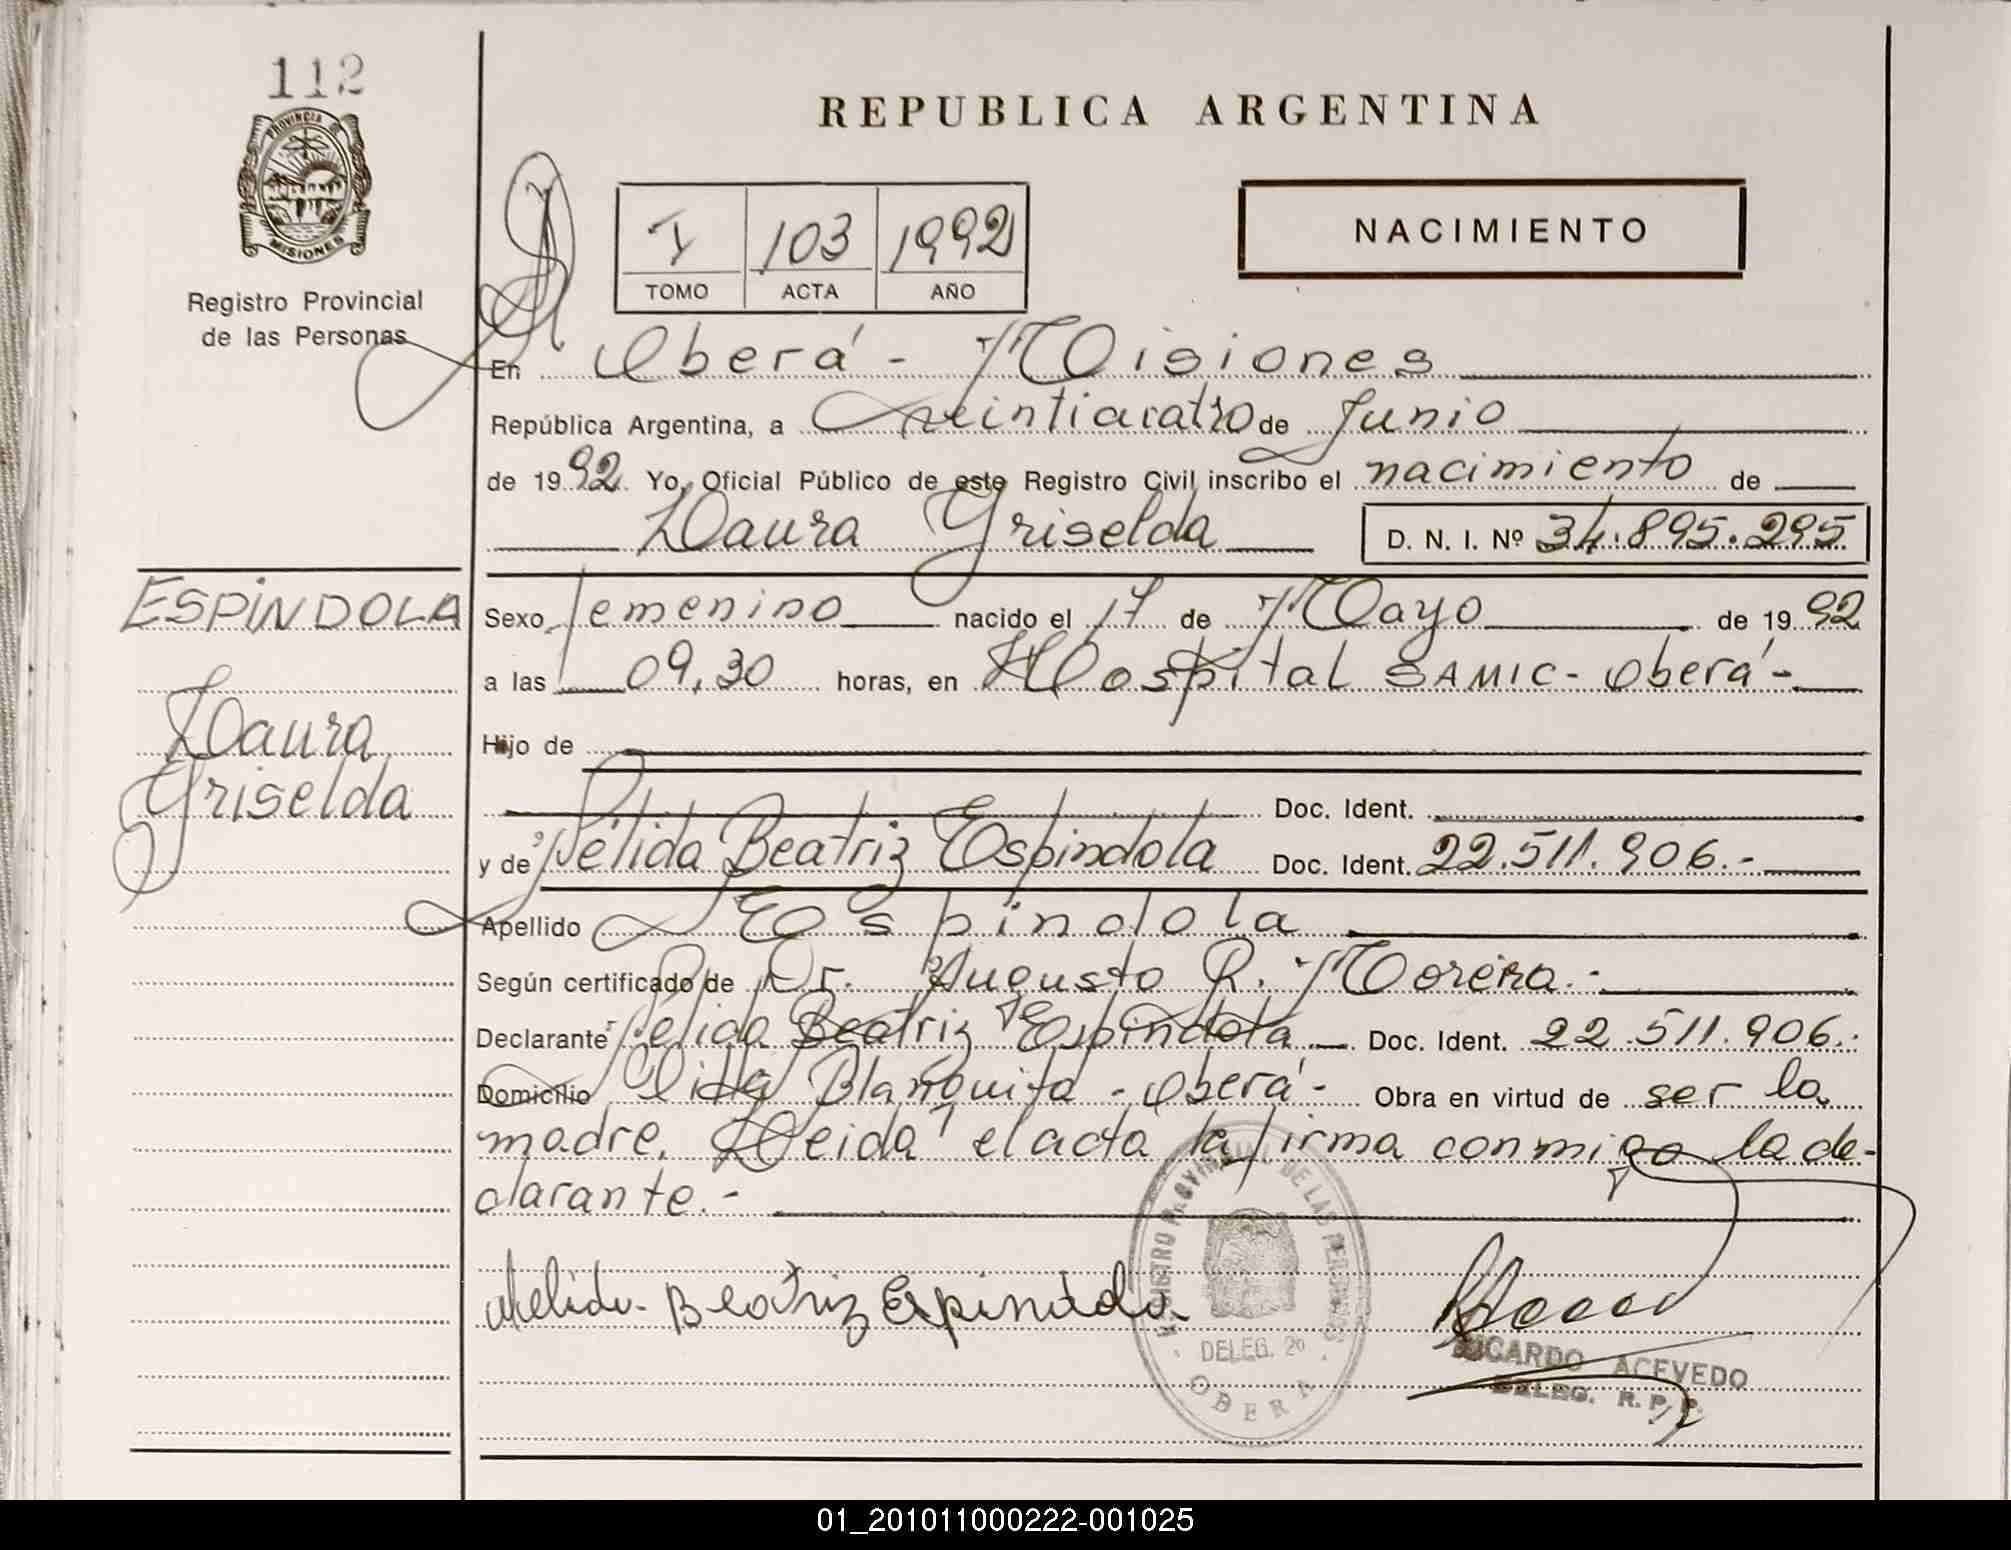 112
PROVINCIA
MISIONES
Registro Provincial
de las Personas
REPUBLICA ARGENTINA
I 103 1992
TOMO ACTA AÑO
NACIMIENTO
En Oberá - Misiones
República Argentina, a veinticuatro de Junio
de 1992 Yo, Oficial Público de este Registro Civil inscribo el nacimiento de
Laura Griselda D. N. I. Nº 34.895.295
ESPÍNDOLA
Laura
Griselda
Sexo femenino nacido el 17 de Mayo de 1992
a las 09,30 horas, en Hospital SAMIC - Oberá -
Hijo de
Doc. Ident.
y de Nélida Beatriz Espíndola Doc. Ident. 22.511.906.-
Apellido Espíndola
Según certificado de Dr. Augusto R. Moreira.-
Declarante Nélida Beatriz Espíndola Doc. Ident. 22.511.906.-
Domicilio Villa Blanquita - Oberá - Obra en virtud de ser la
madre. Leida el acta la firma conmigo la de-
clarante.-
Nelida Beatriz Espindola
REGISTRO PROVINCIAL DE LAS PERSONAS
DELEG. 2º
OBERA
RICARDO ACEVEDO
DELEG. R. P. P.
01_201011000222-001025